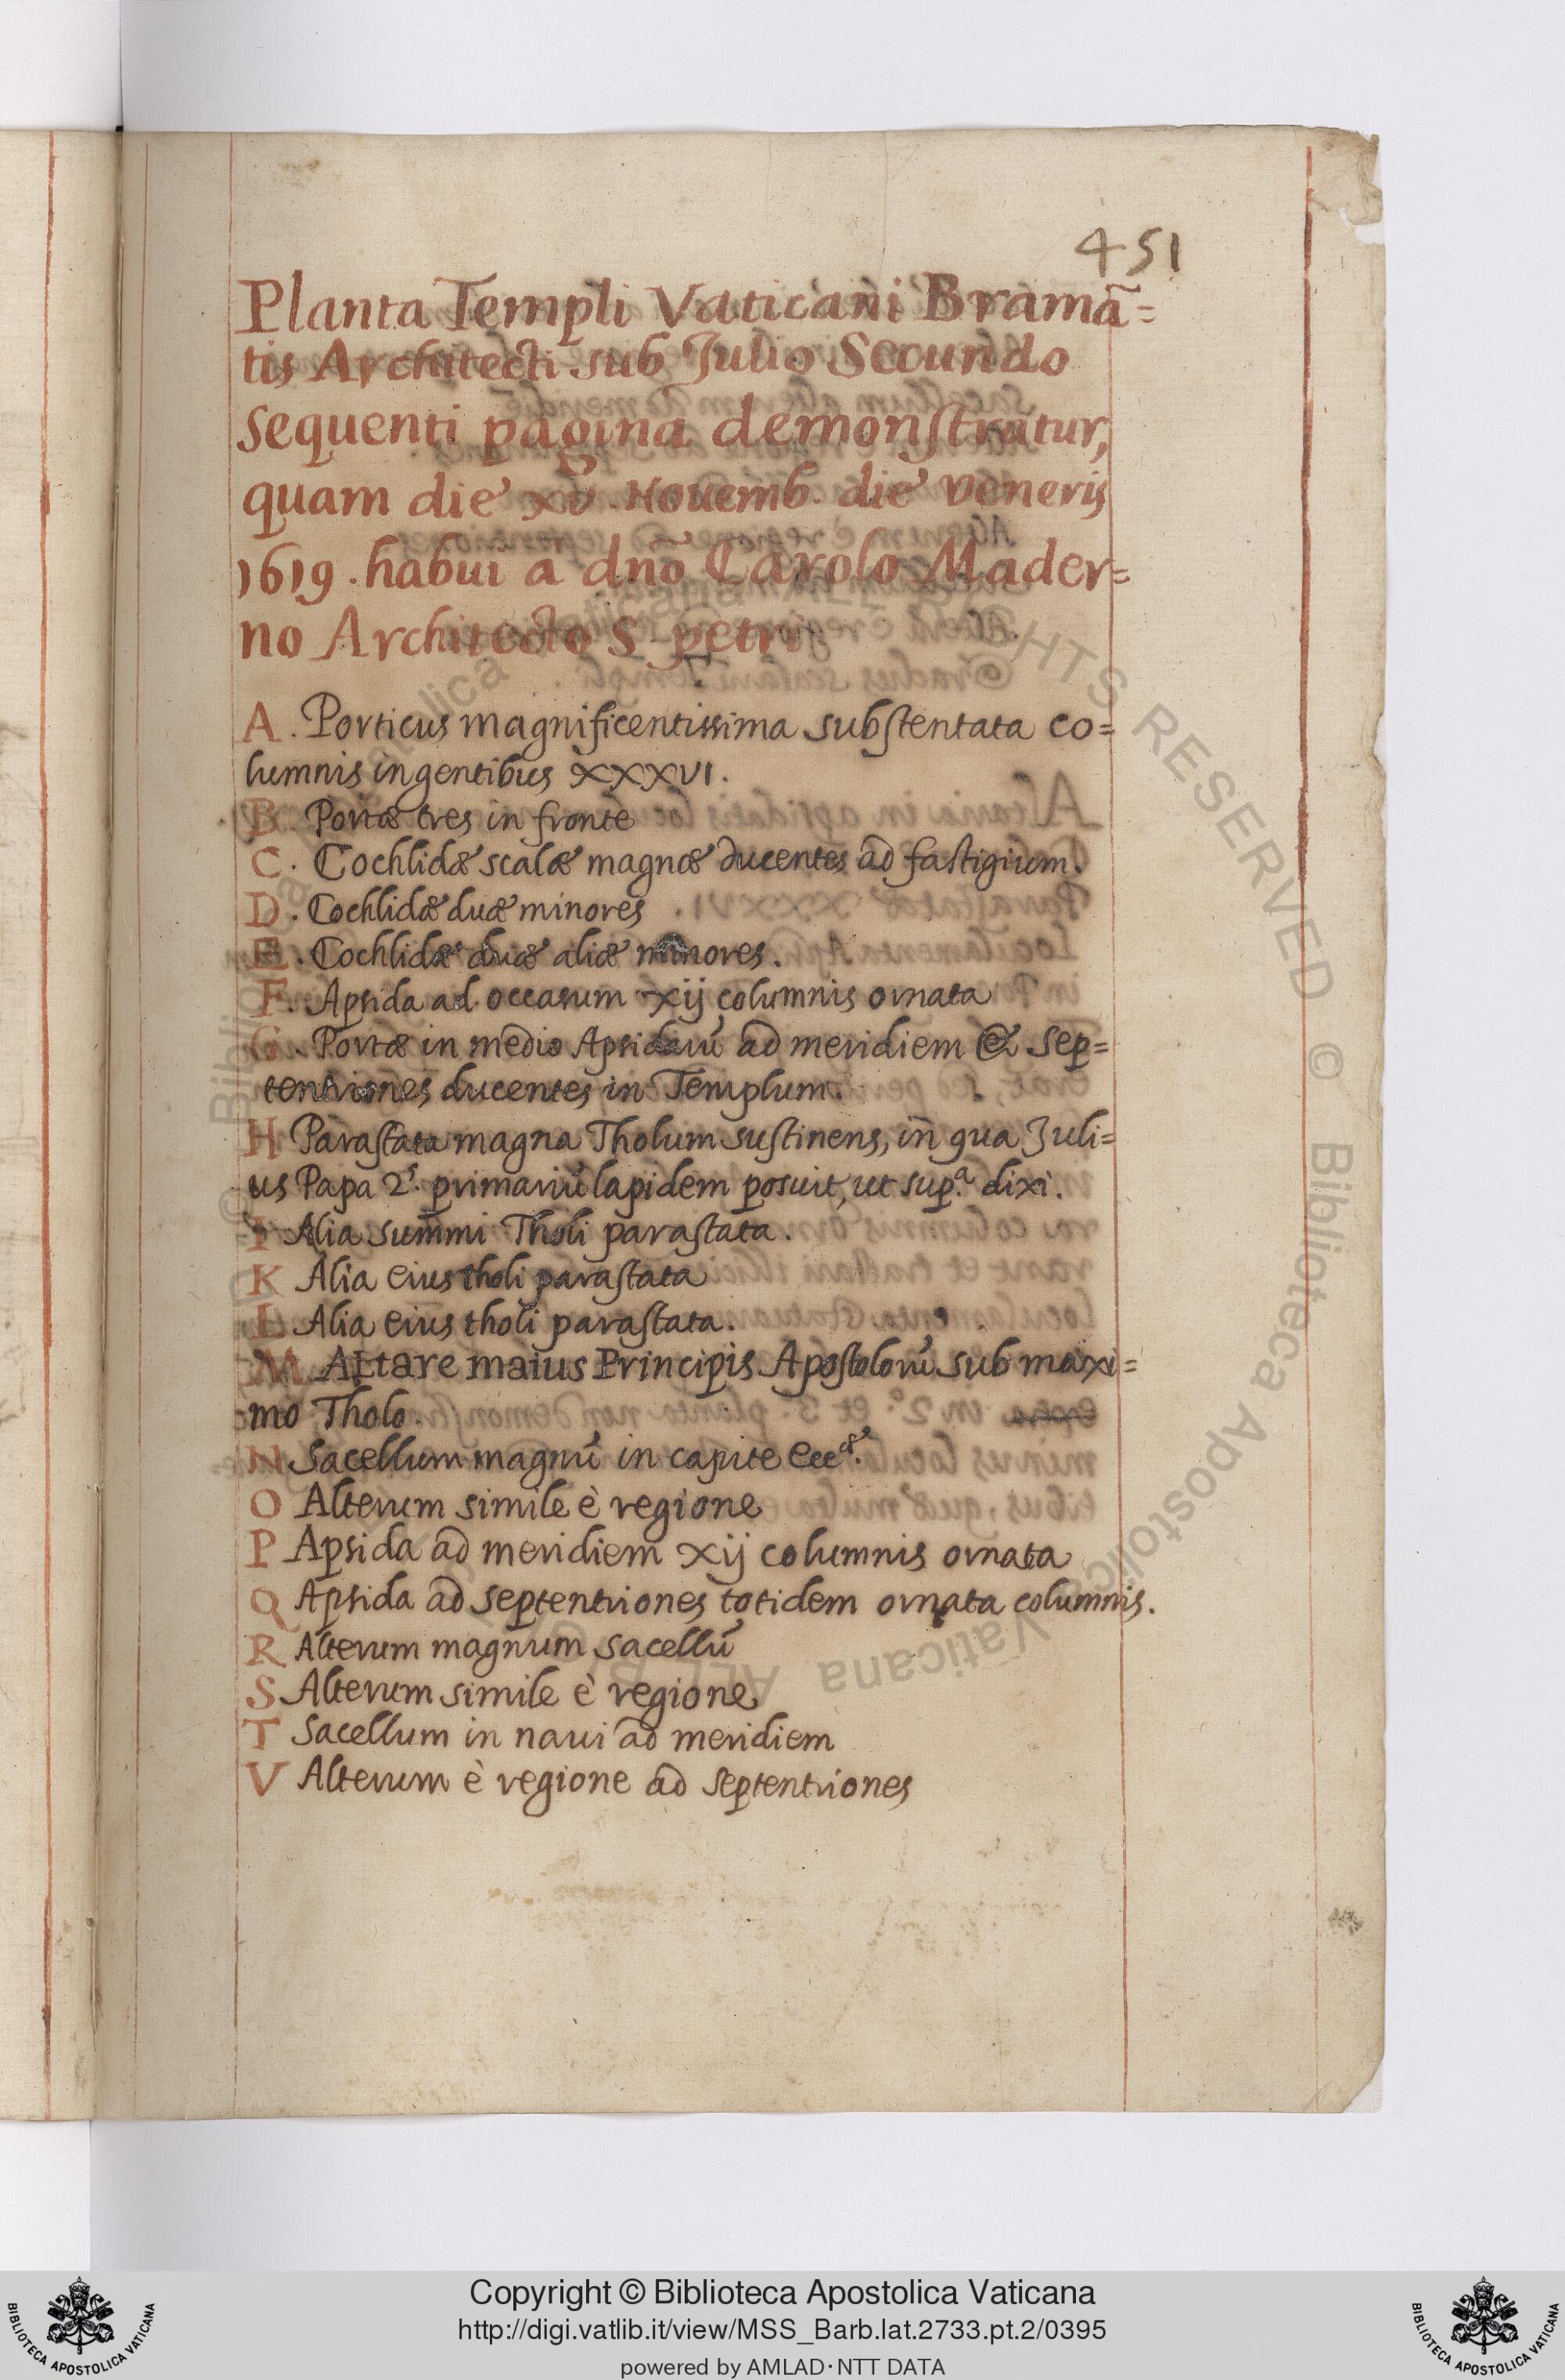 451
Planta Templi Vaticani Bramā=
tis Architecti sub Julio Secundo
sequenti pagina demonstratur,
quam die xv. Nouemb. die veneris
1619. habui a dnō Carolo Mader=
no Architecto S. petri
A. Porticus magnificentissima substentata co=
lumnis ingentibus XXXVI.
B. Portæ tres in fronte
C. Cochlidæ scalæ magnæ ducentes ad fastigium.
D. Cochlidæ duæ minores
E. Cochlidæ duæ aliæ minores.
F. Apsida ad occasum xij columnis ornata
G. Portæ in medio Apsidarū ad meridiem & sep=
tentriones ducentes in Templum.
H Parastata magna Tholum sustinens, in qua Juli=
us Papa 2.s primariū lapidem posuit, ut sup.a dixi.
I Alia summi Tholi parastata.
K Alia eius tholi parastata
L Alia eius tholi parastata.
M Altare maius Principis Apostolorū sub maxi=
mo Tholo.
N Sacellum magnū in capite Ecc.æ
O Alterum simile è regione
P Apsida ad meridiem xij columnis ornata
Q Apsida ad septentriones totidem ornata columnis.
R Alterum magnum sacellū
S Alterum simile è regione
T Sacellum in naui ad meridiem
V Alterum è regione ad septentriones
© Biblioteca Apostolica Vaticana ALL RIGHTS RESERVED
Copyright © Biblioteca Apostolica Vaticana
http://digi.vatlib.it/view/MSS_Barb.lat.2733.pt.2/0395
powered by AMLAD·NTT DATA
BIBLIOTECA APOSTOLICA VATICANA
BIBLIOTECA APOSTOLICA VATICANA